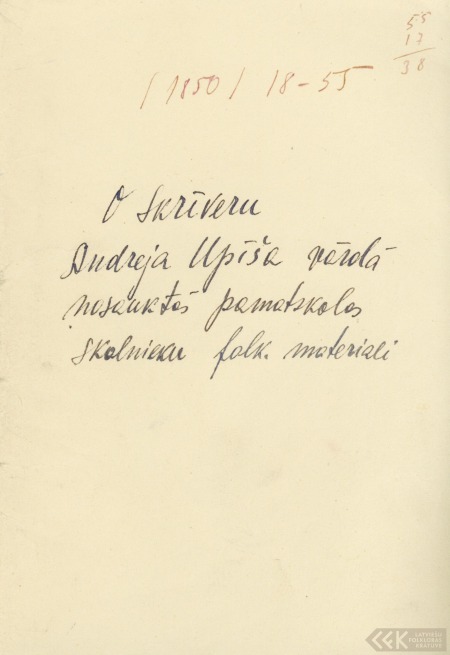 55
17
38
/1850/ 18-55
O Skrīveru
Andreja Upīša vārdā
nosauktās pamatskolas
skolnieku folk. materiali
LATVIEŠU
FOLKLORAS
KRĀTUVE